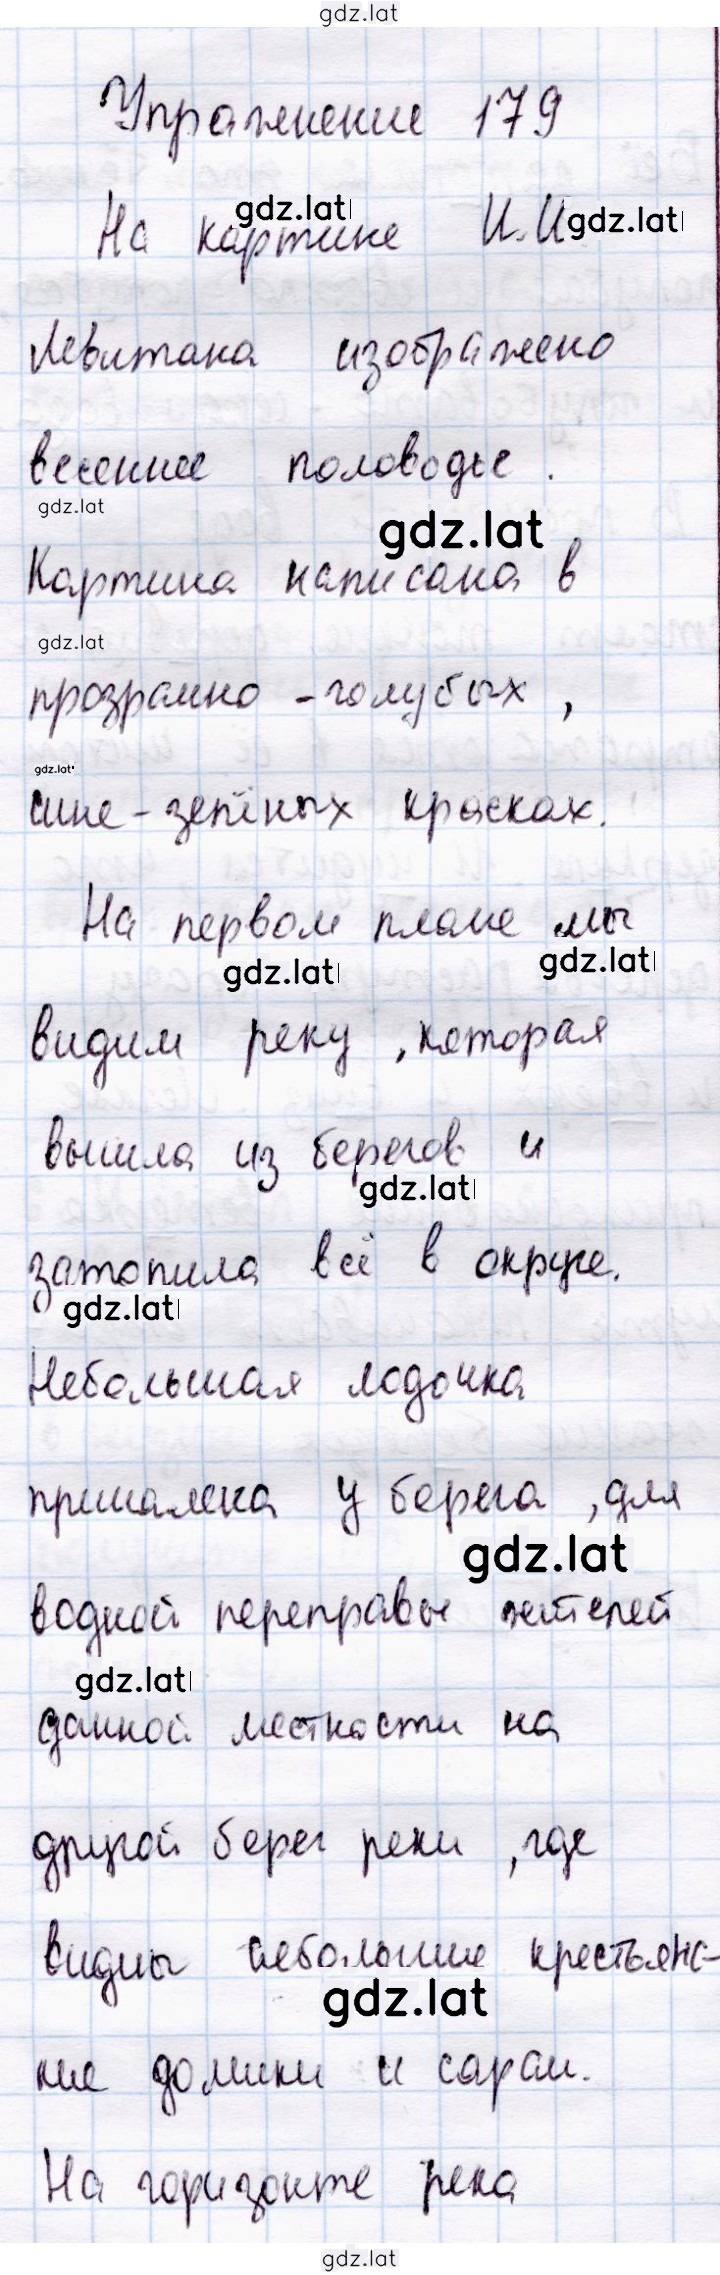 gdz.lat
Упражнение 179
gdz.lat
На картине И.И
gdz.lat
Левитана изображено
весеннее половодье.
gdz.lat
gdz.lat
Картина написана в
gdz.lat
прозрачно-голубых,
gdz.lat
сине-зелёных красках.
На первом плане мы
gdz.lat
gdz.lat
видим реку, которая
вышла из берегов и
gdz.lat
затопила всё в округе.
gdz.lat
Небольшая лодочка
пришалена у берега, для
gdz.lat
водной переправы жителей
gdz.lat
данной местности на
другой берег реки, где
видны небольшие крестьянс-
gdz.lat
кие домики и сараи.
На горизонте река
gdz.lat